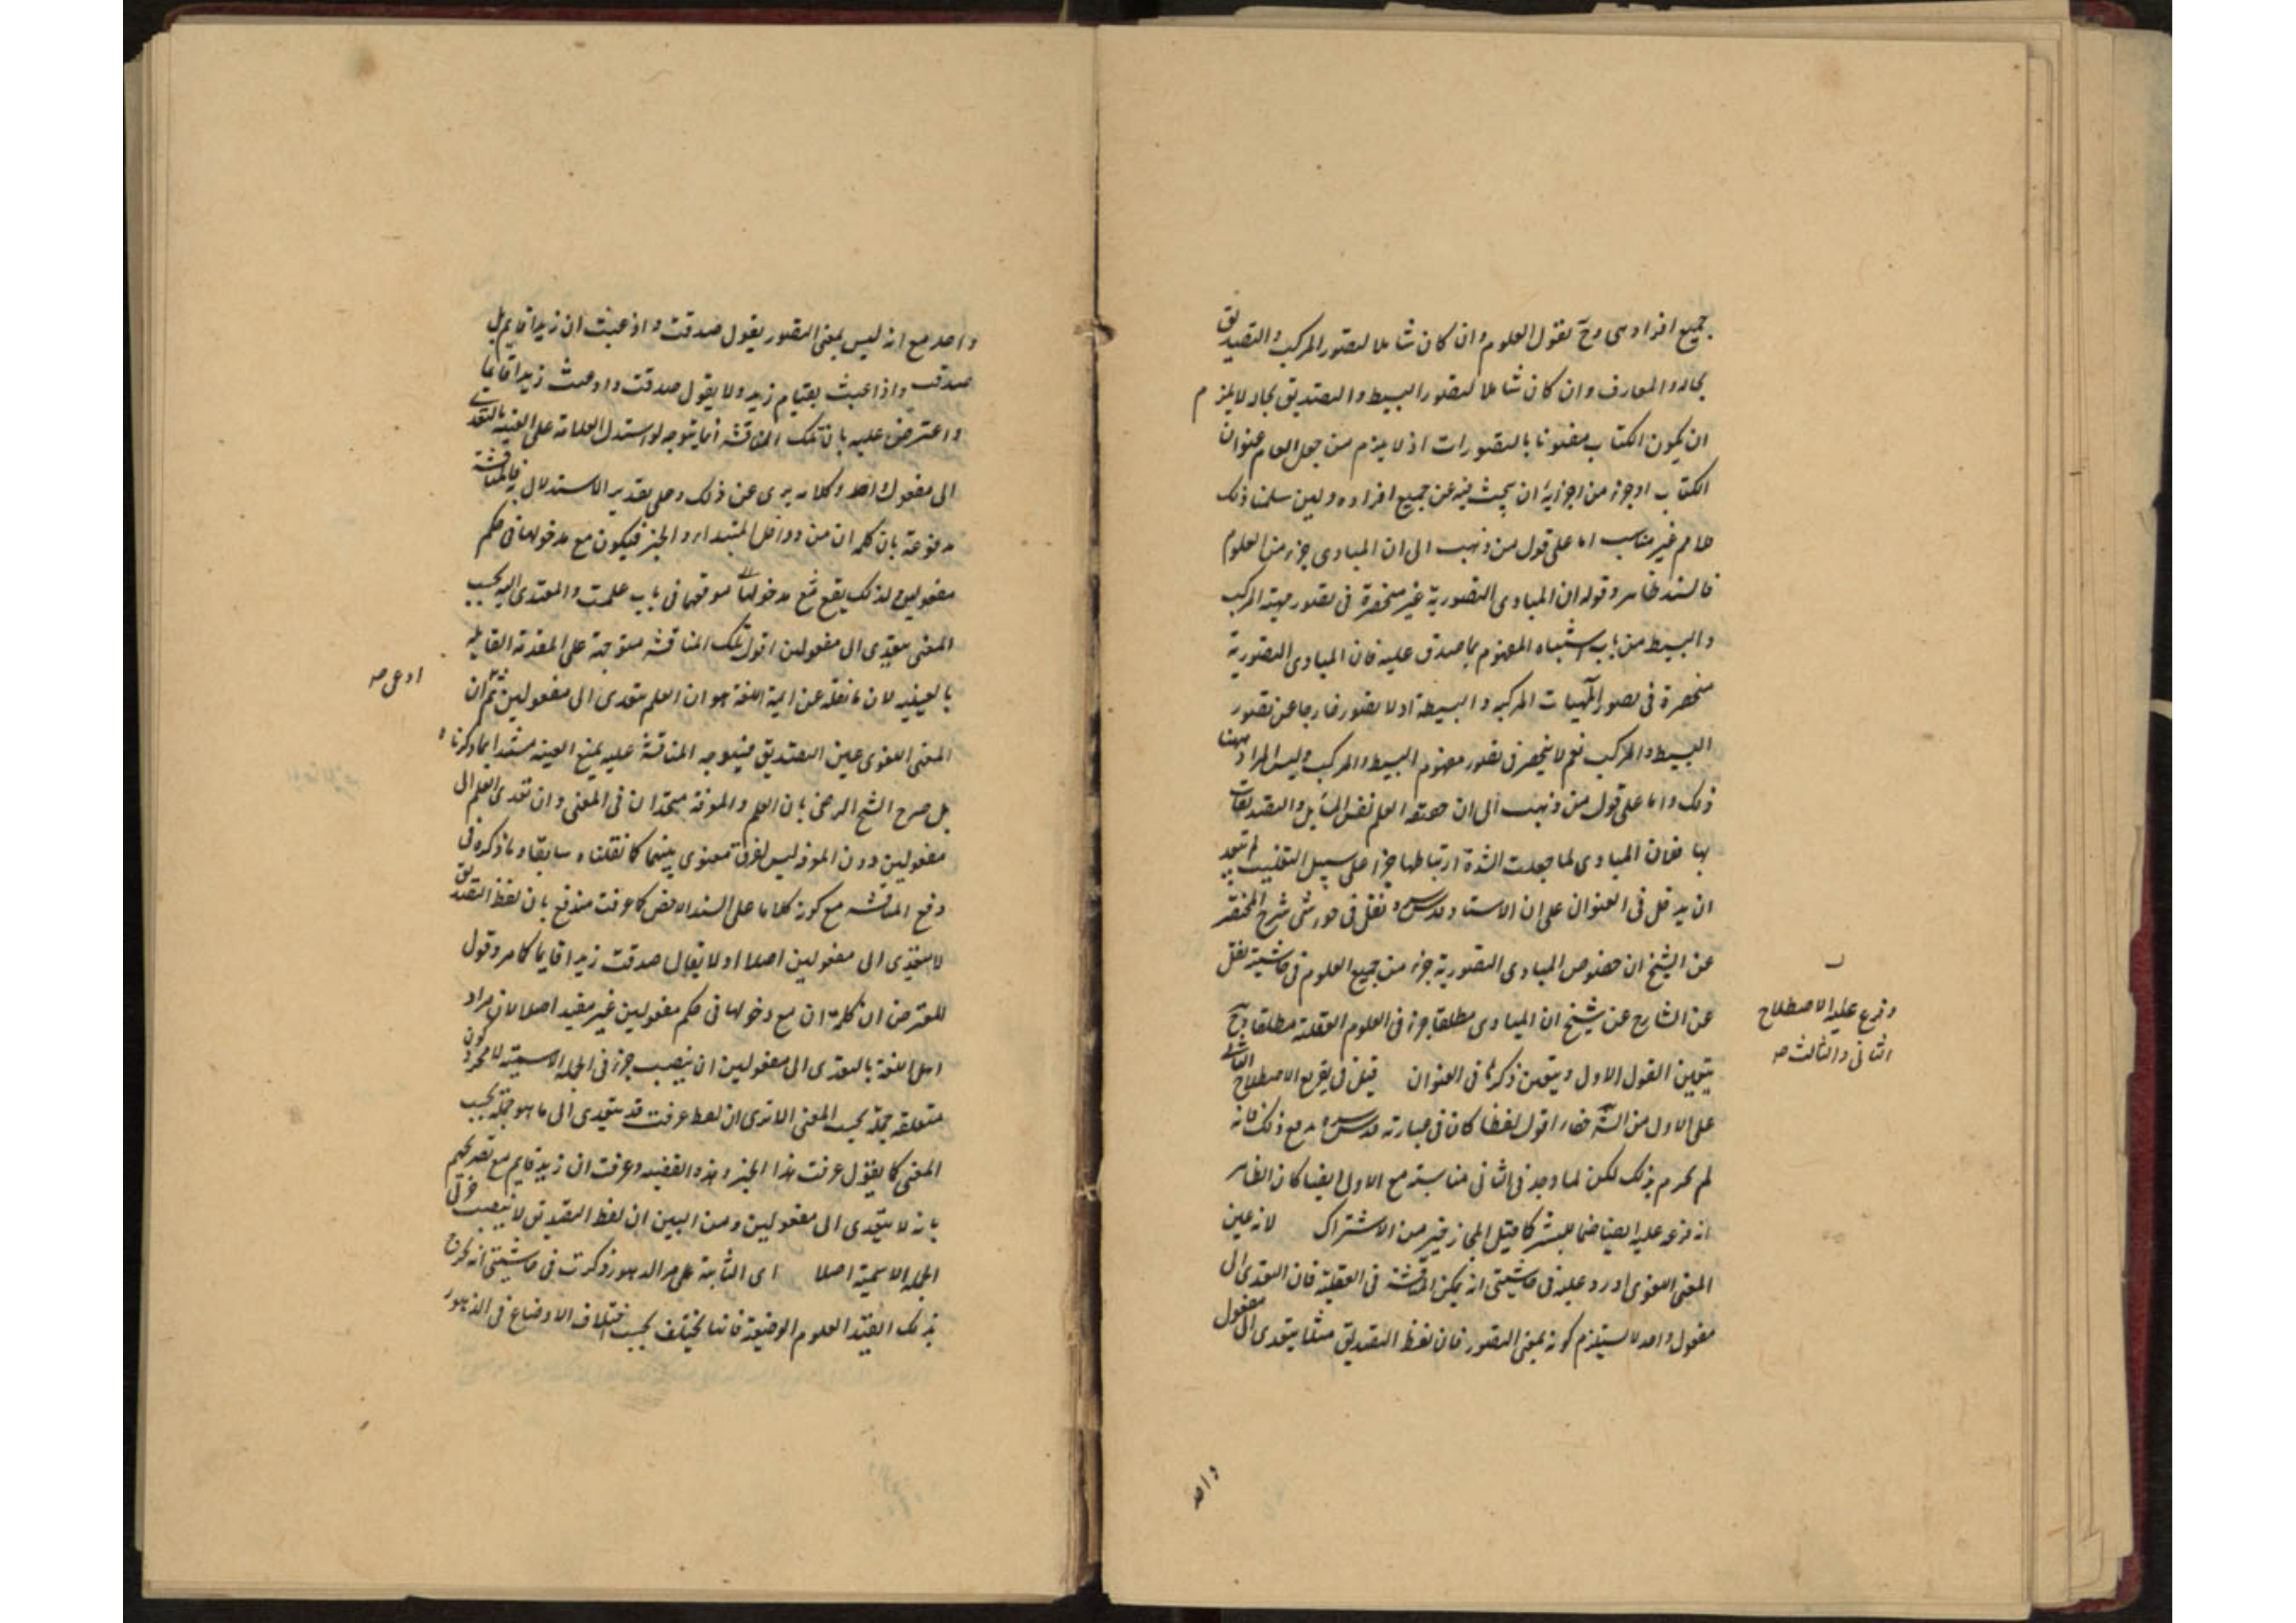 جميع افراده وح نقول العلوم وان كان شاملا لتصور المركب والتصديق
بحاله والمعارف وان كان شاملا لتصور البسيط والتصديق بحاله لا يلزم
ان يكون الكتاب معنونا بالتصورات اذ لا يلزم من جعل العام عنوان
الكتاب اوجزء من اجزائه ان يبحث فيه عن جميع افراده ولين سلمنا ذلك
غير مناسب اما على قول من ذهب الى ان المبادى جزء من العلوم
فالسند ظاهر وقوله ان المبادى التصورية غير منحصرة فى تصور مهية المركب
والبسيط من باب اشتباه المفهوم بما صدق عليه فان المبادى التصورية
منحصرة فى تصور المهيات المركبة والبسيطة اذ لا تصور خارجا عن تصور
البسيط والمركب نعم لا ينحصر فى تصور مفهوم البسيط والمركب وليس المراد ههنا
ذلك واما على قول من ذهب الى ان حقيقة العلم نفس المسايل والتصديقات
بها فان المبادى لما جعلت لشدة ارتباطها جزءا على سبيل التغليب لم يبعد
ان يدخل فى العنوان على ان الاستاد قدس سره نقل فى حواشى شرح المختصر
عن الشيخ ان خصوص المبادى التصورية جزء من جميع العلوم فى حاشيته نقل
عن الشارح عن الشيخ ان المبادى مطلقا جزء فى العلوم العقلية مطلقا وح
يتعين القول الاول ويتعين ذكرها فى العنوان قيل فى تفريع الاصطلاح الثانى
على الاول من الشارح اقول لفظا كان فى عبارته قدس سره مع ذلك فانه
لم يجزم بذلك لكن لما وجد فى الثانى مناسبة مع الاول ايضا كان الظاهر
انه فرعه عليه ايضا كما قيل المجاز خير من الاشتراك لانه عين
المعنى اللغوى اورد عليه فى حاشيتى انه يمكن المناقشة فى العقلية فان التعدى الى
مفعول واحد لا يستلزم كونه بمعنى التصور فان لفظ التصديق مثلا يتعدى الى مفعول
وفرع عليه الاصطلاح
الثانى والثالث صح
واحد
واحد مع انه ليس بمعنى التصور يقول صدقت واذعنت ان زيدا قايم بل
صدقت واذعنت بقيام زيد ولا يقول صدقت واذعنت زيدا قايما
واعترض عليه بان تلك المناقشة انما يتوجه لو استدل العلامة على العينية بالتعدى
الى مفعول واحد وكلامه برى عن ذلك وعلى تقدير الاستدلال فالمناقشة
مدفوعة بان كلمة ان من دواخل المبتدا والخبر فيكون مع مدخولها فى حكم
مفعولين ولذلك يقع مع مدخولها موقعهما فى باب علمت والمتعدى اليه بحسب
المعنى يتعدى الى مفعولين اقول تلك المناقشة متوجهة على المقدمة القايلة
بالعينية لان ما نقله عن ايمة اللغة هو ان العلم يتعدى الى مفعولين ثم ان
المعنى اللغوى عين التصديق فيتوجه المناقشة عليه بمنع العينية مستندا بما ذكرناه
بل صرح الشيخ الرضى بان العلم والمعرفة متحدان فى المعنى وان تعدى العلم الى
مفعولين دون المعرفة ليس لفرق معنوى بينهما كما نقلناه سابقا وما ذكره فى
دفع المناقشة مع كونه كلاما على السند الاخص كما عرفت مندفع بان لفظ التصديق
لا يتعدى الى مفعولين اصلا اذ لا يقال صدقت زيدا قايما كما مر وقول
المعترض ان كلمة ان مع دخولها فى حكم مفعولين غير مفيد اصلا لان مراد
اهل اللغة بالتعدى الى مفعولين ان ينصب جزئى الجملة الاسمية لا مجرد كون
متعلقه جملة بحسب المعنى الا ترى ان لفظ عرفت قد يتعدى الى ما هو جملة بحسب
المعنى كما يقول عرفت هذا الخبر وهذه القضية وعرفت ان زيد قايم مع تصريحهم
بانه لا يتعدى الى مفعولين ومن البين ان لفظ التصديق لا ينصب جزئى
الجملة الاسمية اصلا اى الثابتة على مر الدهور ذكرت فى حاشيتى انه يخرج
بذلك القيد العلوم الوضعية فانها يختلف بحسب اختلاف الاوضاع فى الدهور
ادعى صح